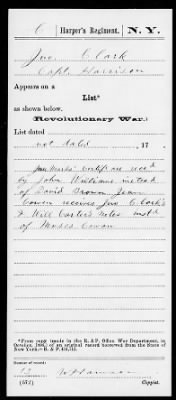 C | Harper's Regiment, | N. Y.
Jno. Clark
Capt. Harrison
Appears on a
List*
as shown below.
Revolutionary War.
List dated
not dated, 17
Jno Marks' Certificate rec'd
by John Williams instead
of David Brown Jean
Cowen receives Jno. Clark's
& Will Carter's Notes inst'd
of Moses Cowan
*From copy (made in the R. & P. Office War Department, in
October, 1896,) of an original record borrowed from the State of
New York.—R. & P. 436,513.
Number of record:
13
(572) Copyist.